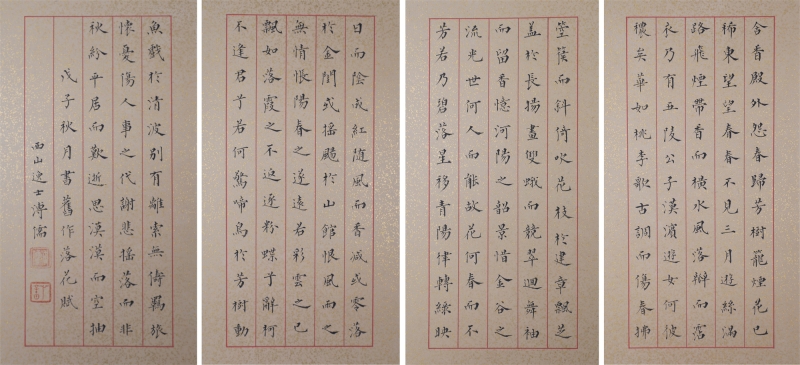 含香殿外怨春歸芳樹籠煙花已
稀東望望春春不見三月遊絲滿
路飛煙帶香而橫水風落瓣而霑
衣乃有五陵公子漢濱遊女何彼
穠矣華如桃李歌古調而傷春拂
箜篌而斜倚吹花枝於建章飄芝
蓋於長揚畫雙蛾而競翠迴舞袖
而留香憶河陽之韶景惜金谷之
流光世何人而能故花何春而不
芳若乃碧落星移青陽律轉綠映
日而陰成紅隨風而香減或零落
於金門或搖颺於山館恨風雨之
無情悵陽春之遂遠若彩雲之已
飄如落霞之不返逐粉蝶兮辭柯
不逢君兮若何驚啼鳥於芳樹動
魚戲於清波別有離索無儔羈旅
懷憂傷人事之代謝悲搖落而非
秋紛平居而歎逝思漠漠而空抽
戊子秋月書舊作落花賦
西山逸士溥儒